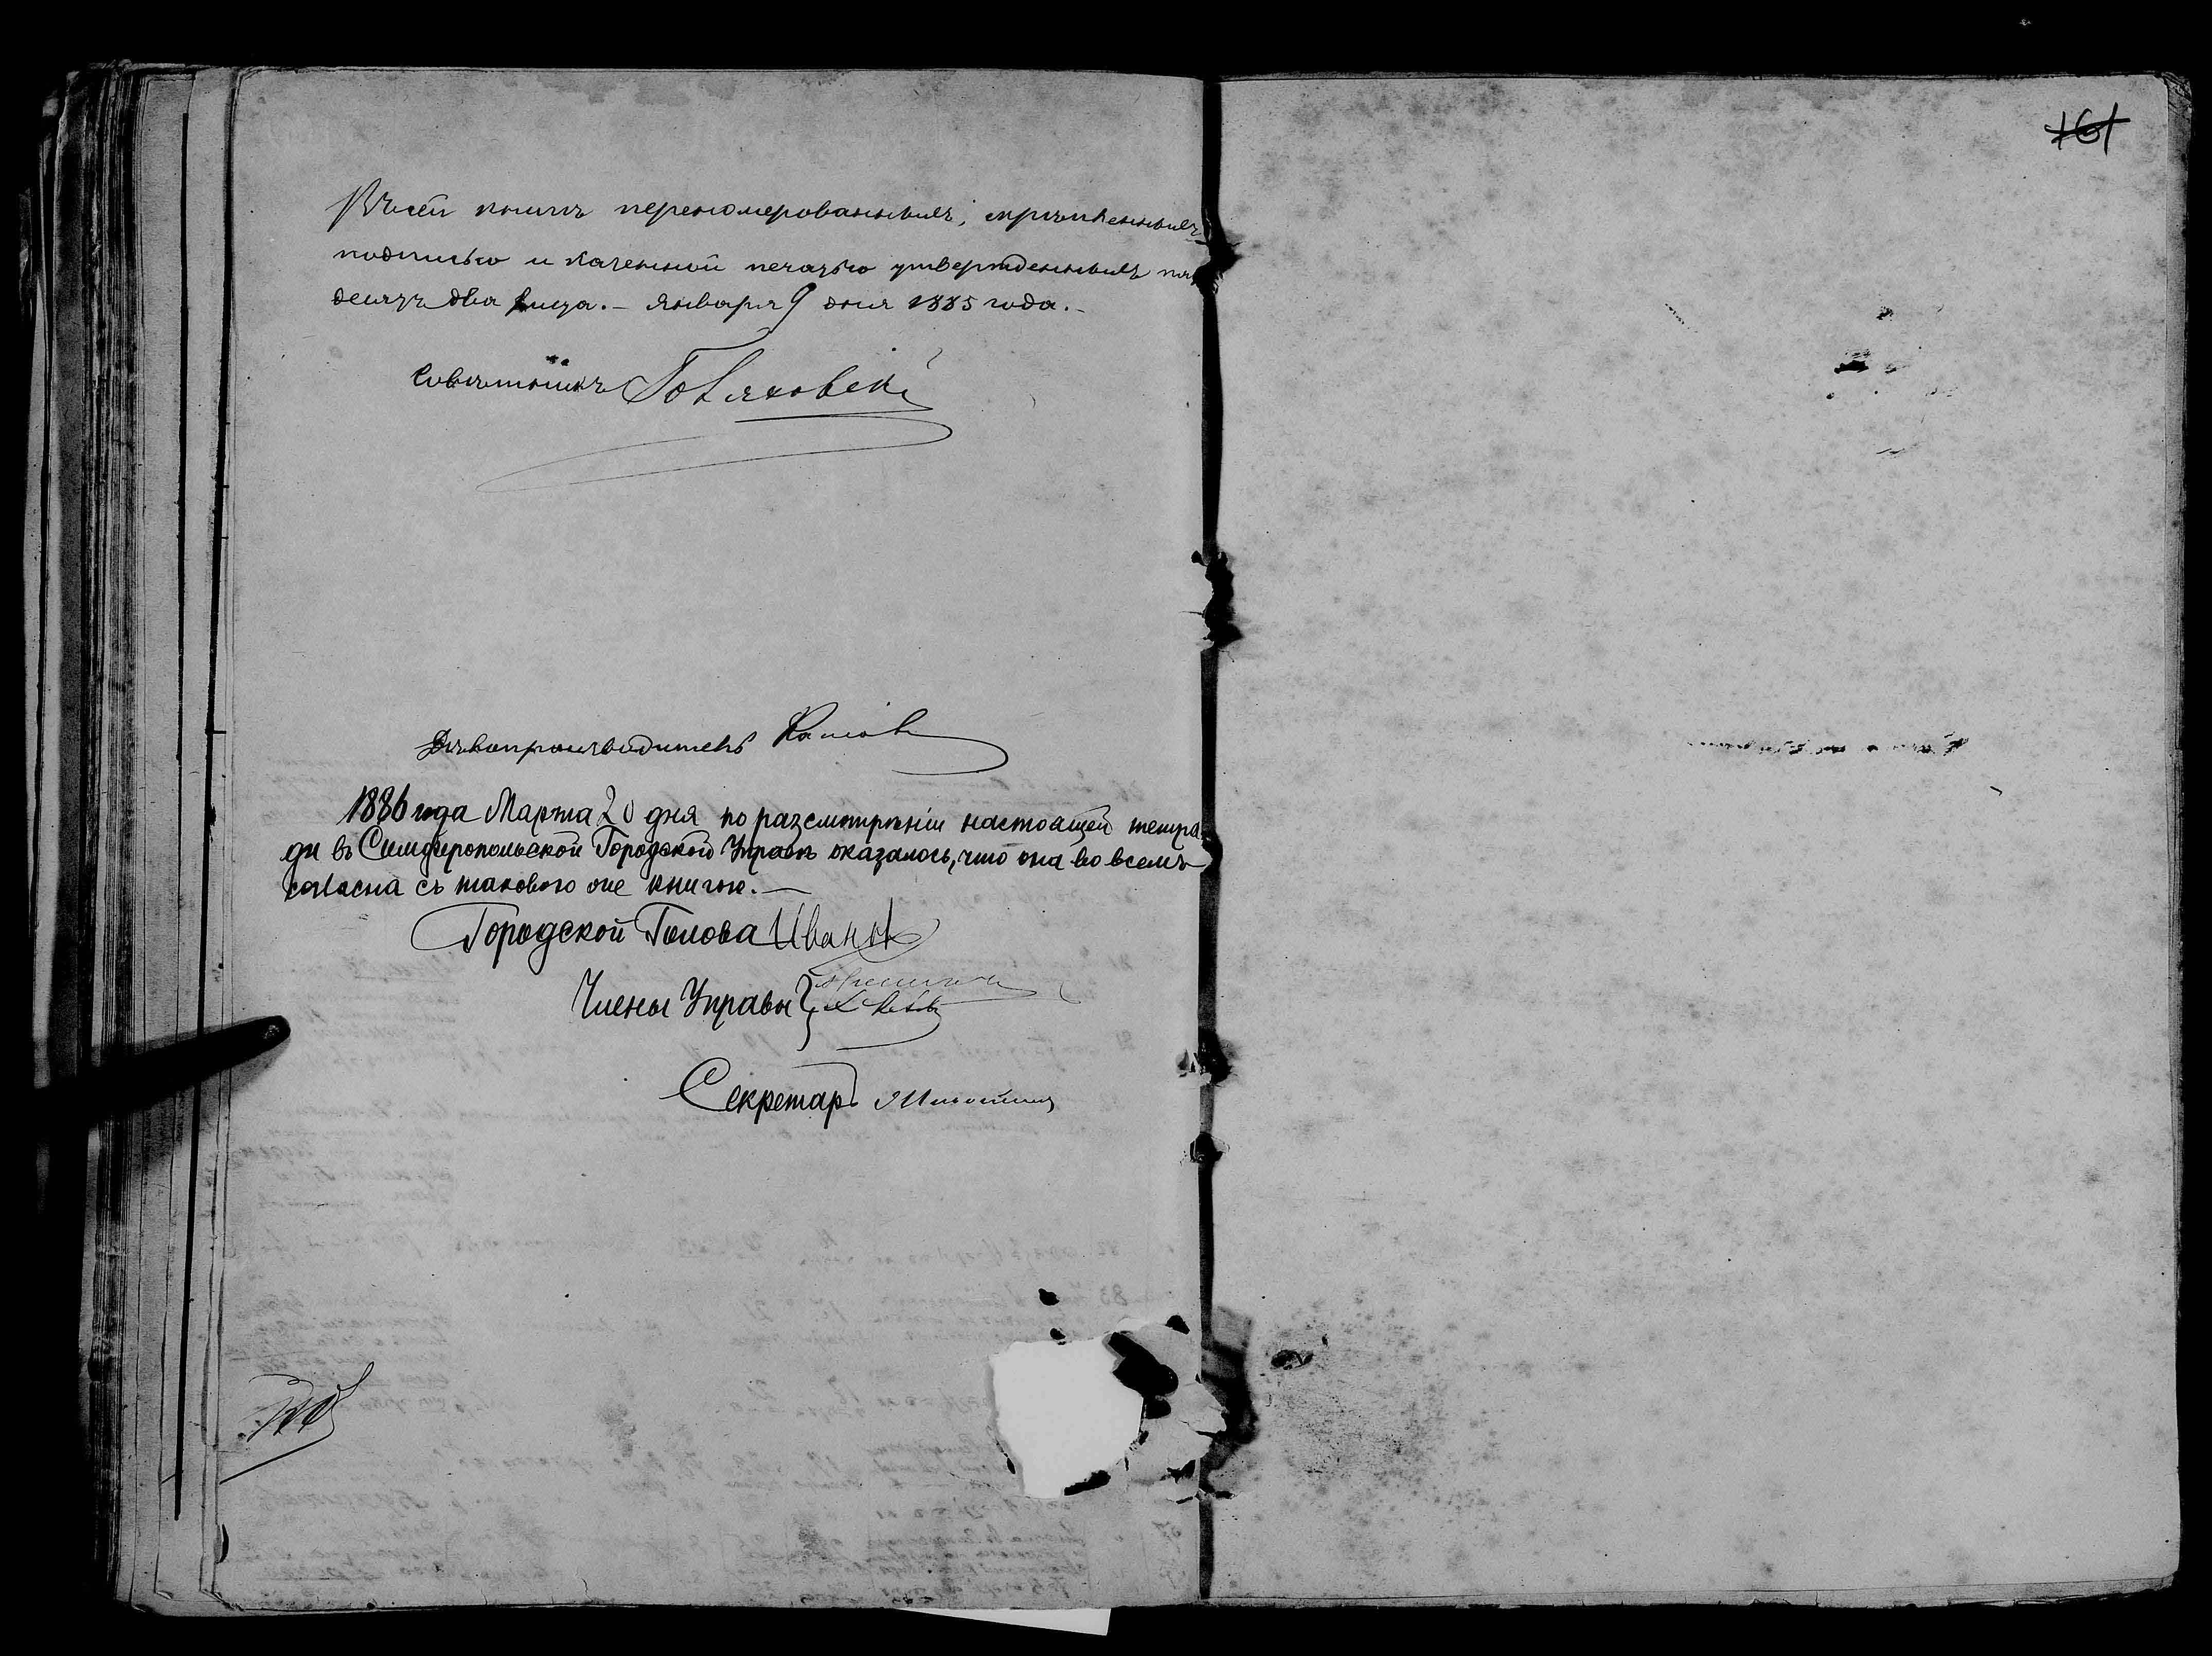 Въ сей книгѣ перенумерованныхъ, скрѣпленныхъ
подписью и казенной печатью утвержденныхъ пять
десятъ два листа. — Января 9 дня 1885 года. —
Совѣтникъ
Дѣлопроизводитель
1886 года Марта 20 дня по разсмотрѣніи настоящей тетра-
ди въ Симферопольской Городской Управѣ оказалось, что она во всемъ
согласна съ таковою же книгою. —
Городской Голова Ивановъ
Члены Управы
Секретарь
161